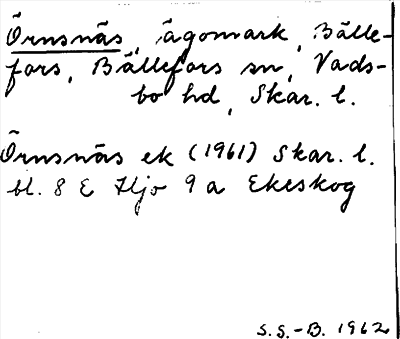 Örnsnäs, ägomark, Bälle-
fors, Bällefors sn, Vads-
bo hd, Skar. l.
Örnsnäs ek (1961) Skar. l.
bl. 8 E Hjo 9 a Ekeskog
S.S.-B. 1962